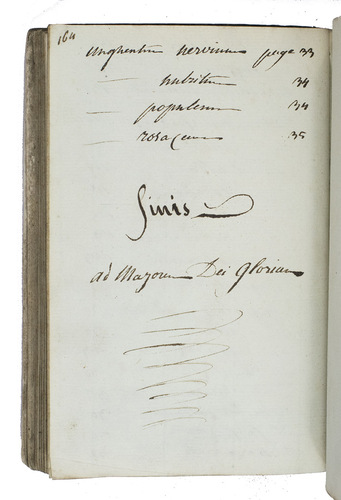 164
unghentum nervinum page 33
— nutritum 34
— populeum 34
— rosaceum 35
Finis
ad Majorem Dei Gloriam